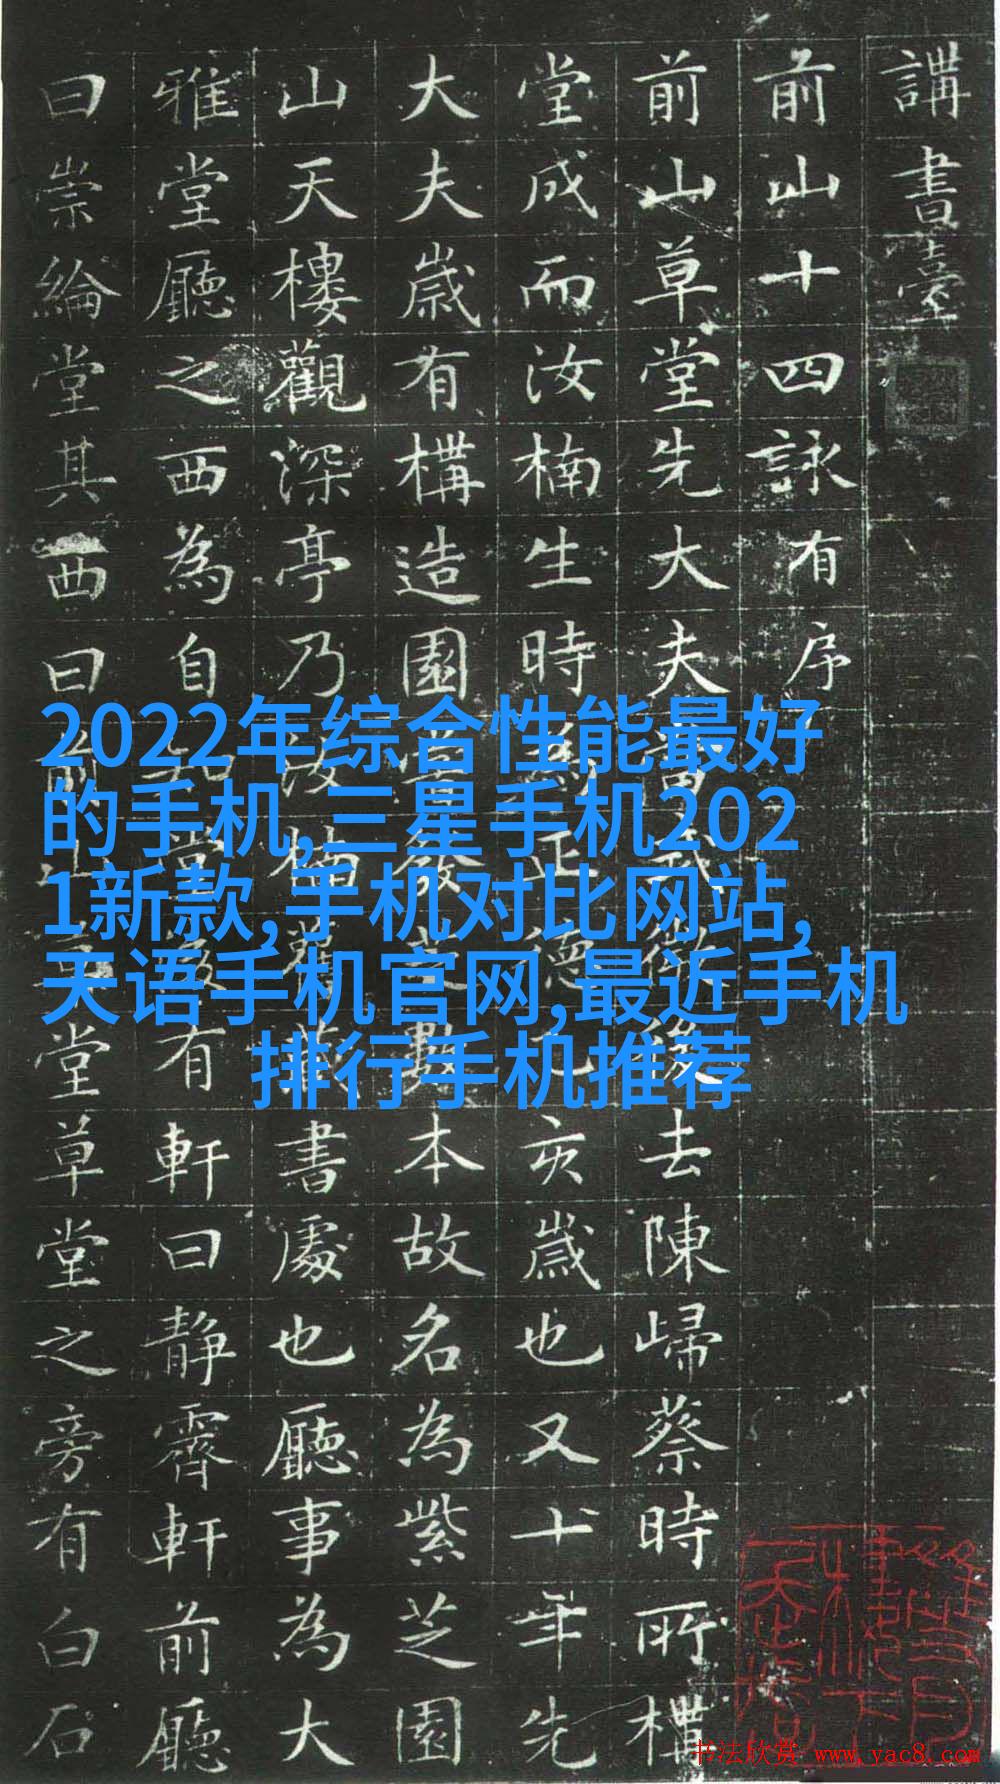 講書臺
前山十四詠有序
前山草堂先大夫後去陳歸蔡時所構
堂成而汝楠生時正德乙亥歲也又十年先
大夫歲有構造園發數本故名為紫芝園
山天樓觀深亭乃故藏書處也廳事為大
雅堂廳之西為自知堂有軒曰静齋軒前廳
曰崇綸堂其西曰前山堂草堂之旁有白石
2022年综合性能最好
的手机,三星手机202
1新款,手机对比网站,
天语手机官网,最近手机
排行手机推荐
书法欣赏 www.yac8.com